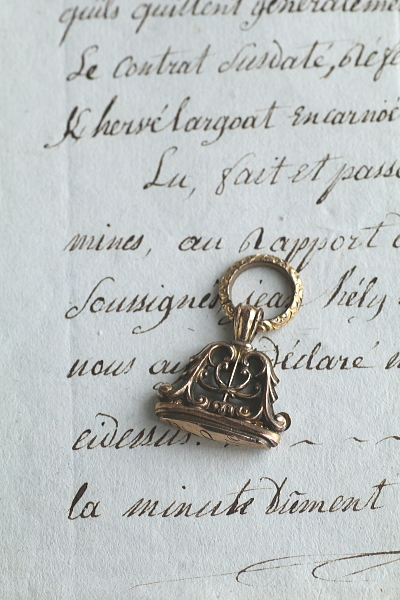 quils quittent generaleme
Le contrat Susdaté, Réfé
Khervélargoat en carnoë
Lu, fait et passé
mines, au Rapport d
Soussignés, jean hély
nous au Déclaré n
eidessus.
la minute Dûment